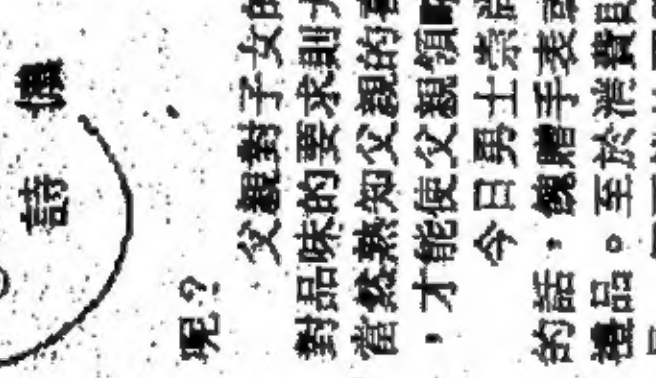 詩
呢?
父親對子女的
對品味的要求則
當然熟知父親的
,才能使父親領
今日男士崇尚
的話,餽贈手表或
禮品。至於消費